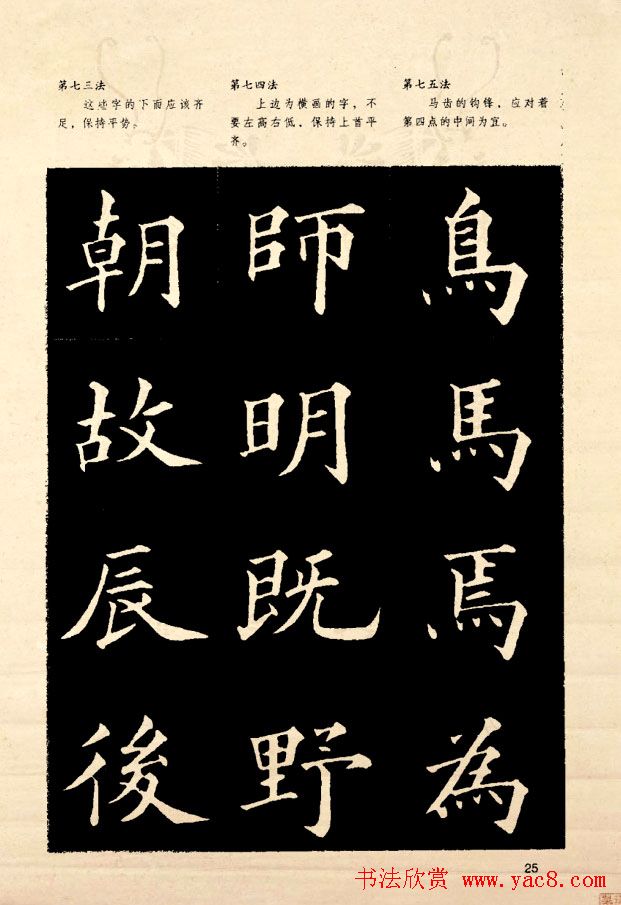 第七三法
这些字的下面应该齐
足，保持平势。
第七四法
上边为横画的字，不
要左高右低，保持上首平
齐。
第七五法
马齿的钩锋，应对着
第四点的中间为宜。
朝 師 鳥
故 明 馬
辰 既 焉
後 野 為
25
书法欣赏 www.yac8.com